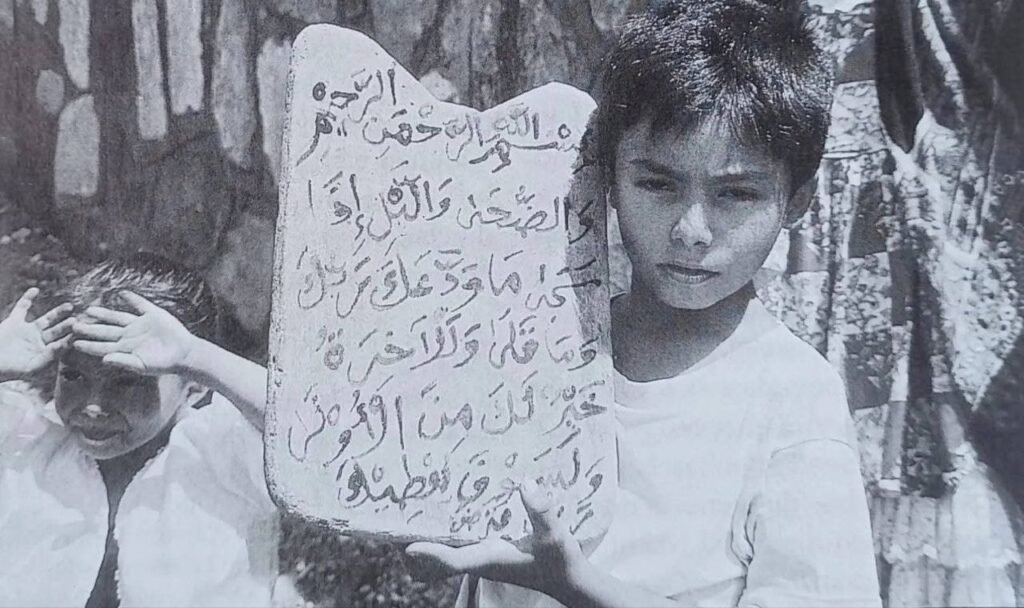 بسم الله الرحمن الرحيم
وَالضُّحَىٰ وَالَّيْلِ إِذَا
سَجَىٰ مَا وَدَّعَكَ رَبُّكَ
وَمَا قَلَىٰ وَلَلْأَخِرَةُ
خَيْرٌ لَكَ مِنَ الْأُوْلَىٰ
وَلَسَوْفَ يُعْطِيكَ